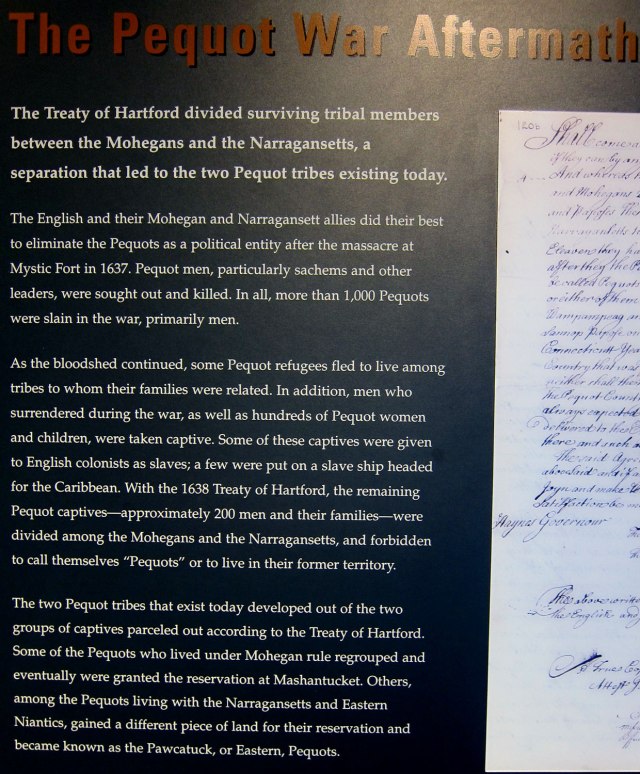 The Pequot War Aftermath
The Treaty of Hartford divided surviving tribal members
between the Mohegans and the Narragansetts, a
separation that led to the two Pequot tribes existing today.
The English and their Mohegan and Narragansett allies did their best
to eliminate the Pequots as a political entity after the massacre at
Mystic Fort in 1637. Pequot men, particularly sachems and other
leaders, were sought out and killed. In all, more than 1,000 Pequots
were slain in the war, primarily men.
As the bloodshed continued, some Pequot refugees fled to live among
tribes to whom their families were related. In addition, men who
surrendered during the war, as well as hundreds of Pequot women
and children, were taken captive. Some of these captives were given
to English colonists as slaves; a few were put on a slave ship headed
for the Caribbean. With the 1638 Treaty of Hartford, the remaining
Pequot captives—approximately 200 men and their families—were
divided among the Mohegans and the Narragansetts, and forbidden
to call themselves “Pequots” or to live in their former territory.
The two Pequot tribes that exist today developed out of the two
groups of captives parceled out according to the Treaty of Hartford.
Some of the Pequots who lived under Mohegan rule regrouped and
eventually were granted the reservation at Mashantucket. Others,
among the Pequots living with the Narragansetts and Eastern
Niantics, gained a different piece of land for their reservation and
became known as the Pawcatuck, or Eastern, Pequots.
if they can by
And whereas
and Mohegans
and
Eleaven they
after they the
be called Pequots
or either of them
Connecticut
Country that was
neither shall
the Pequot
always expected
delivered to the
there and such
the said
abovesaid and
joyn and make
Satisfaction be
Haynes Governour
The above
the English and